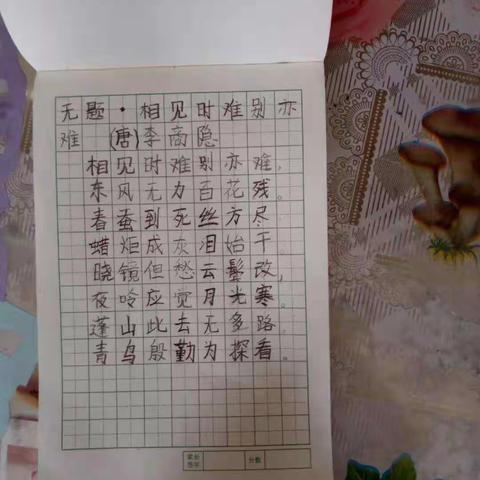 无题·相见时难别亦
难 (唐)李商隐
相见时难别亦难,
东风无力百花残。
春蚕到死丝方尽
蜡炬成灰泪始干
晓镜但愁云鬓改,
夜呤应觉月光寒。
蓬山此去无多路
青鸟殷勤为探看。
家长
签字
分数